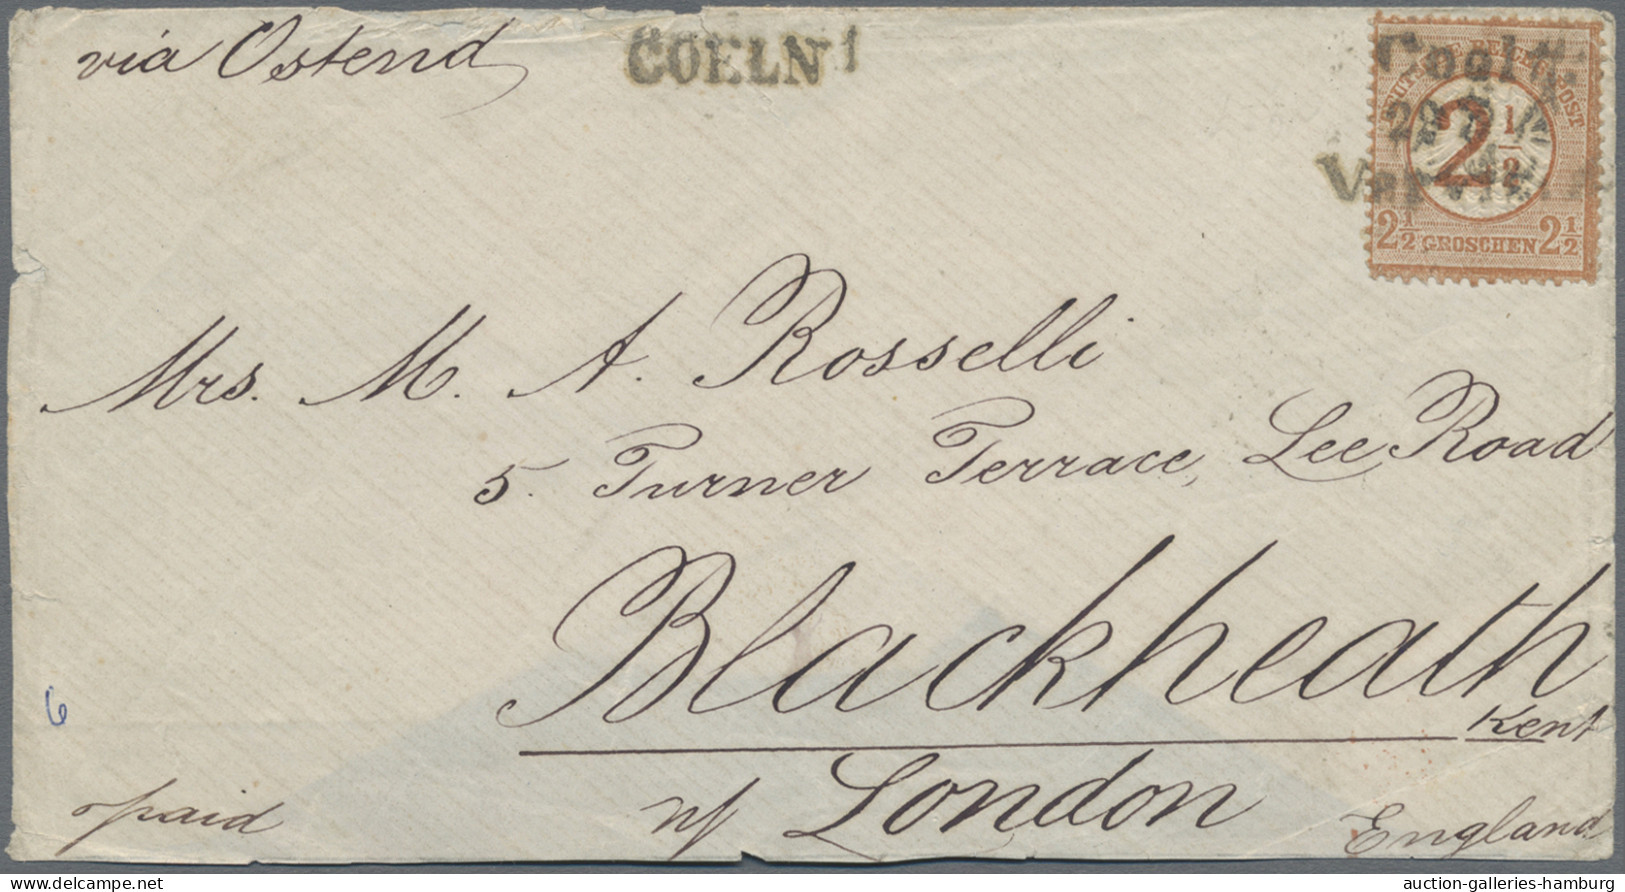 via Ostend
COELN
DEUTSCHE REICHS-POST
2 1/2
2 1/2 GROSCHEN 2 1/2
Mrs. M. A. Rosselli
5. Turner Terrace, Lee Road
Blackheath
Kent
n/ London
England
paid
6
auction-galleries-hamburg